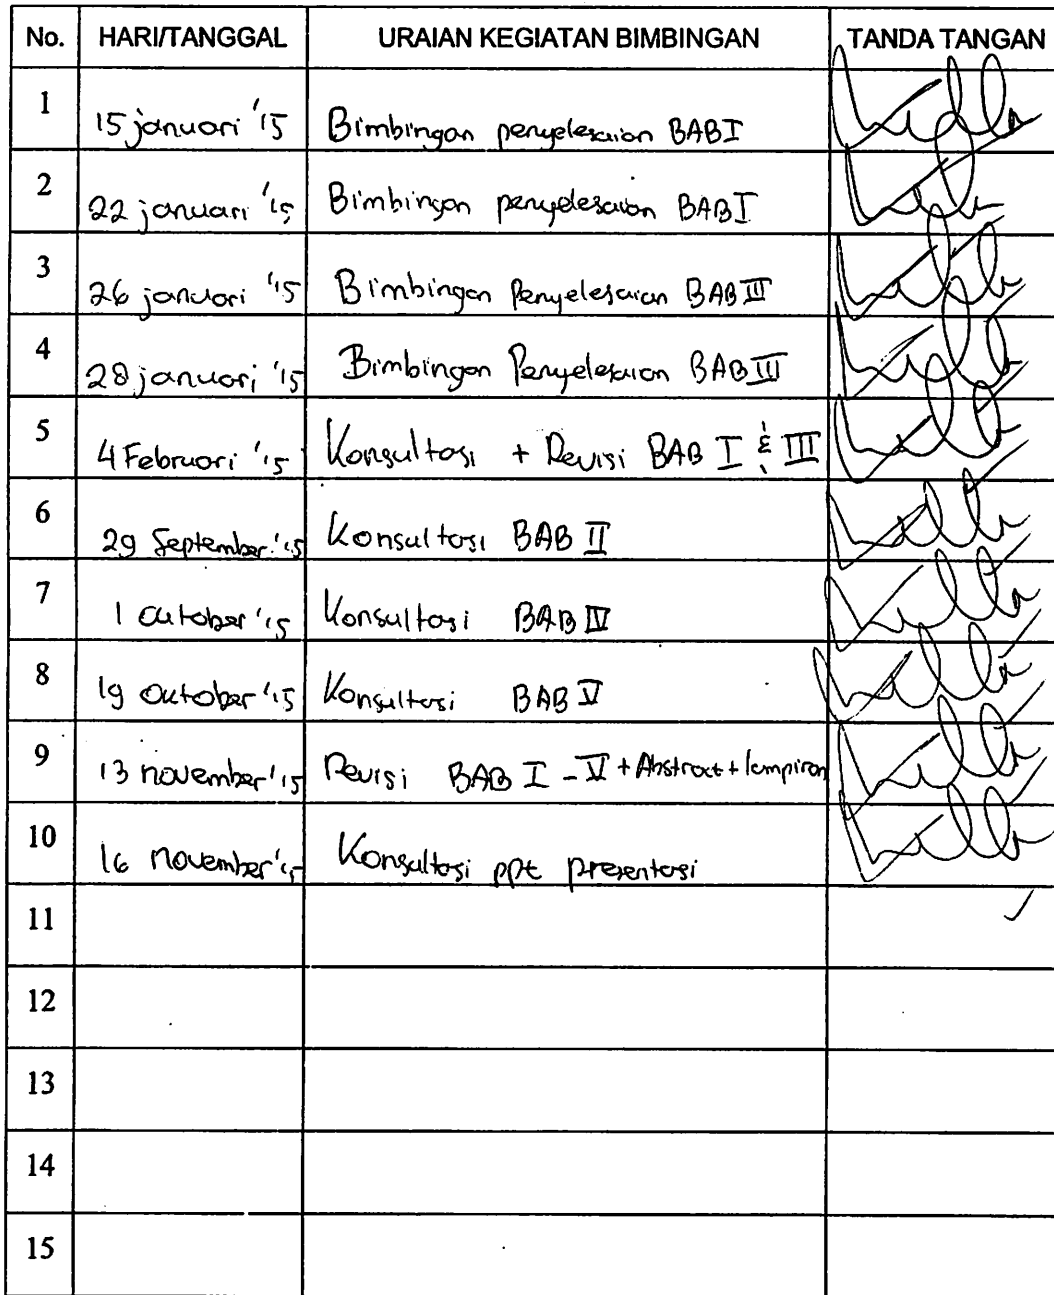 No. HARI/TANGGAL URAIAN KEGIATAN BIMBINGAN TANDA TANGAN
1 15 januari '15 Bimbingan penyelesaian BAB I
2 22 januari '15 Bimbingan penyelesaian BAB I
3 26 januari '15 Bimbingan Penyelesaian BAB III
4 28 januari '15 Bimbingan Penyelesaian BAB III
5 4 Februari '15 Konsultasi + Revisi BAB I & III
6 29 September '15 Konsultasi BAB II
7 1 Oktober '15 Konsultasi BAB IV
8 19 Oktober '15 Konsultasi BAB V
9 13 november '15 Revisi BAB I - V + Abstract + lampiran
10 16 november '15 Konsultasi ppt presentasi
11
12
13
14
15